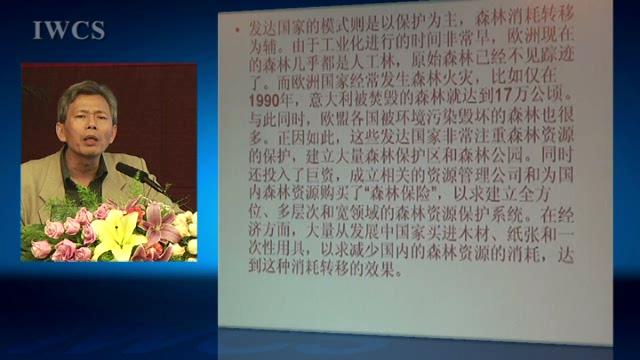 IWCS
• 发达国家的模式则是以保护为主，森林消耗转移
为辅。由于工业化进行的时间非常早，欧洲现在
的森林几乎都是人工林，原始森林已经不见踪迹
了。而欧洲国家经常发生森林火灾，比如仅在
1990年，意大利被焚毁的森林就达到17万公顷。
与此同时，欧盟各国被环境污染毁坏的森林也很
多。正因如此，这些发达国家非常注重森林资源
的保护，建立大量森林保护区和森林公园。同时
还投入了巨资，成立相关的资源管理公司和为国
内森林资源购买了“森林保险”，以求建立全方
位、多层次和宽领域的森林资源保护系统。在经
济方面，大量从发展中国家买进木材、纸张和一
次性用具，以求减少国内的森林资源的消耗，达
到这种消耗转移的效果。